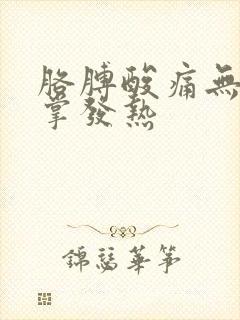 胳膊酸痛無
掌發熱
錦瑟華箏